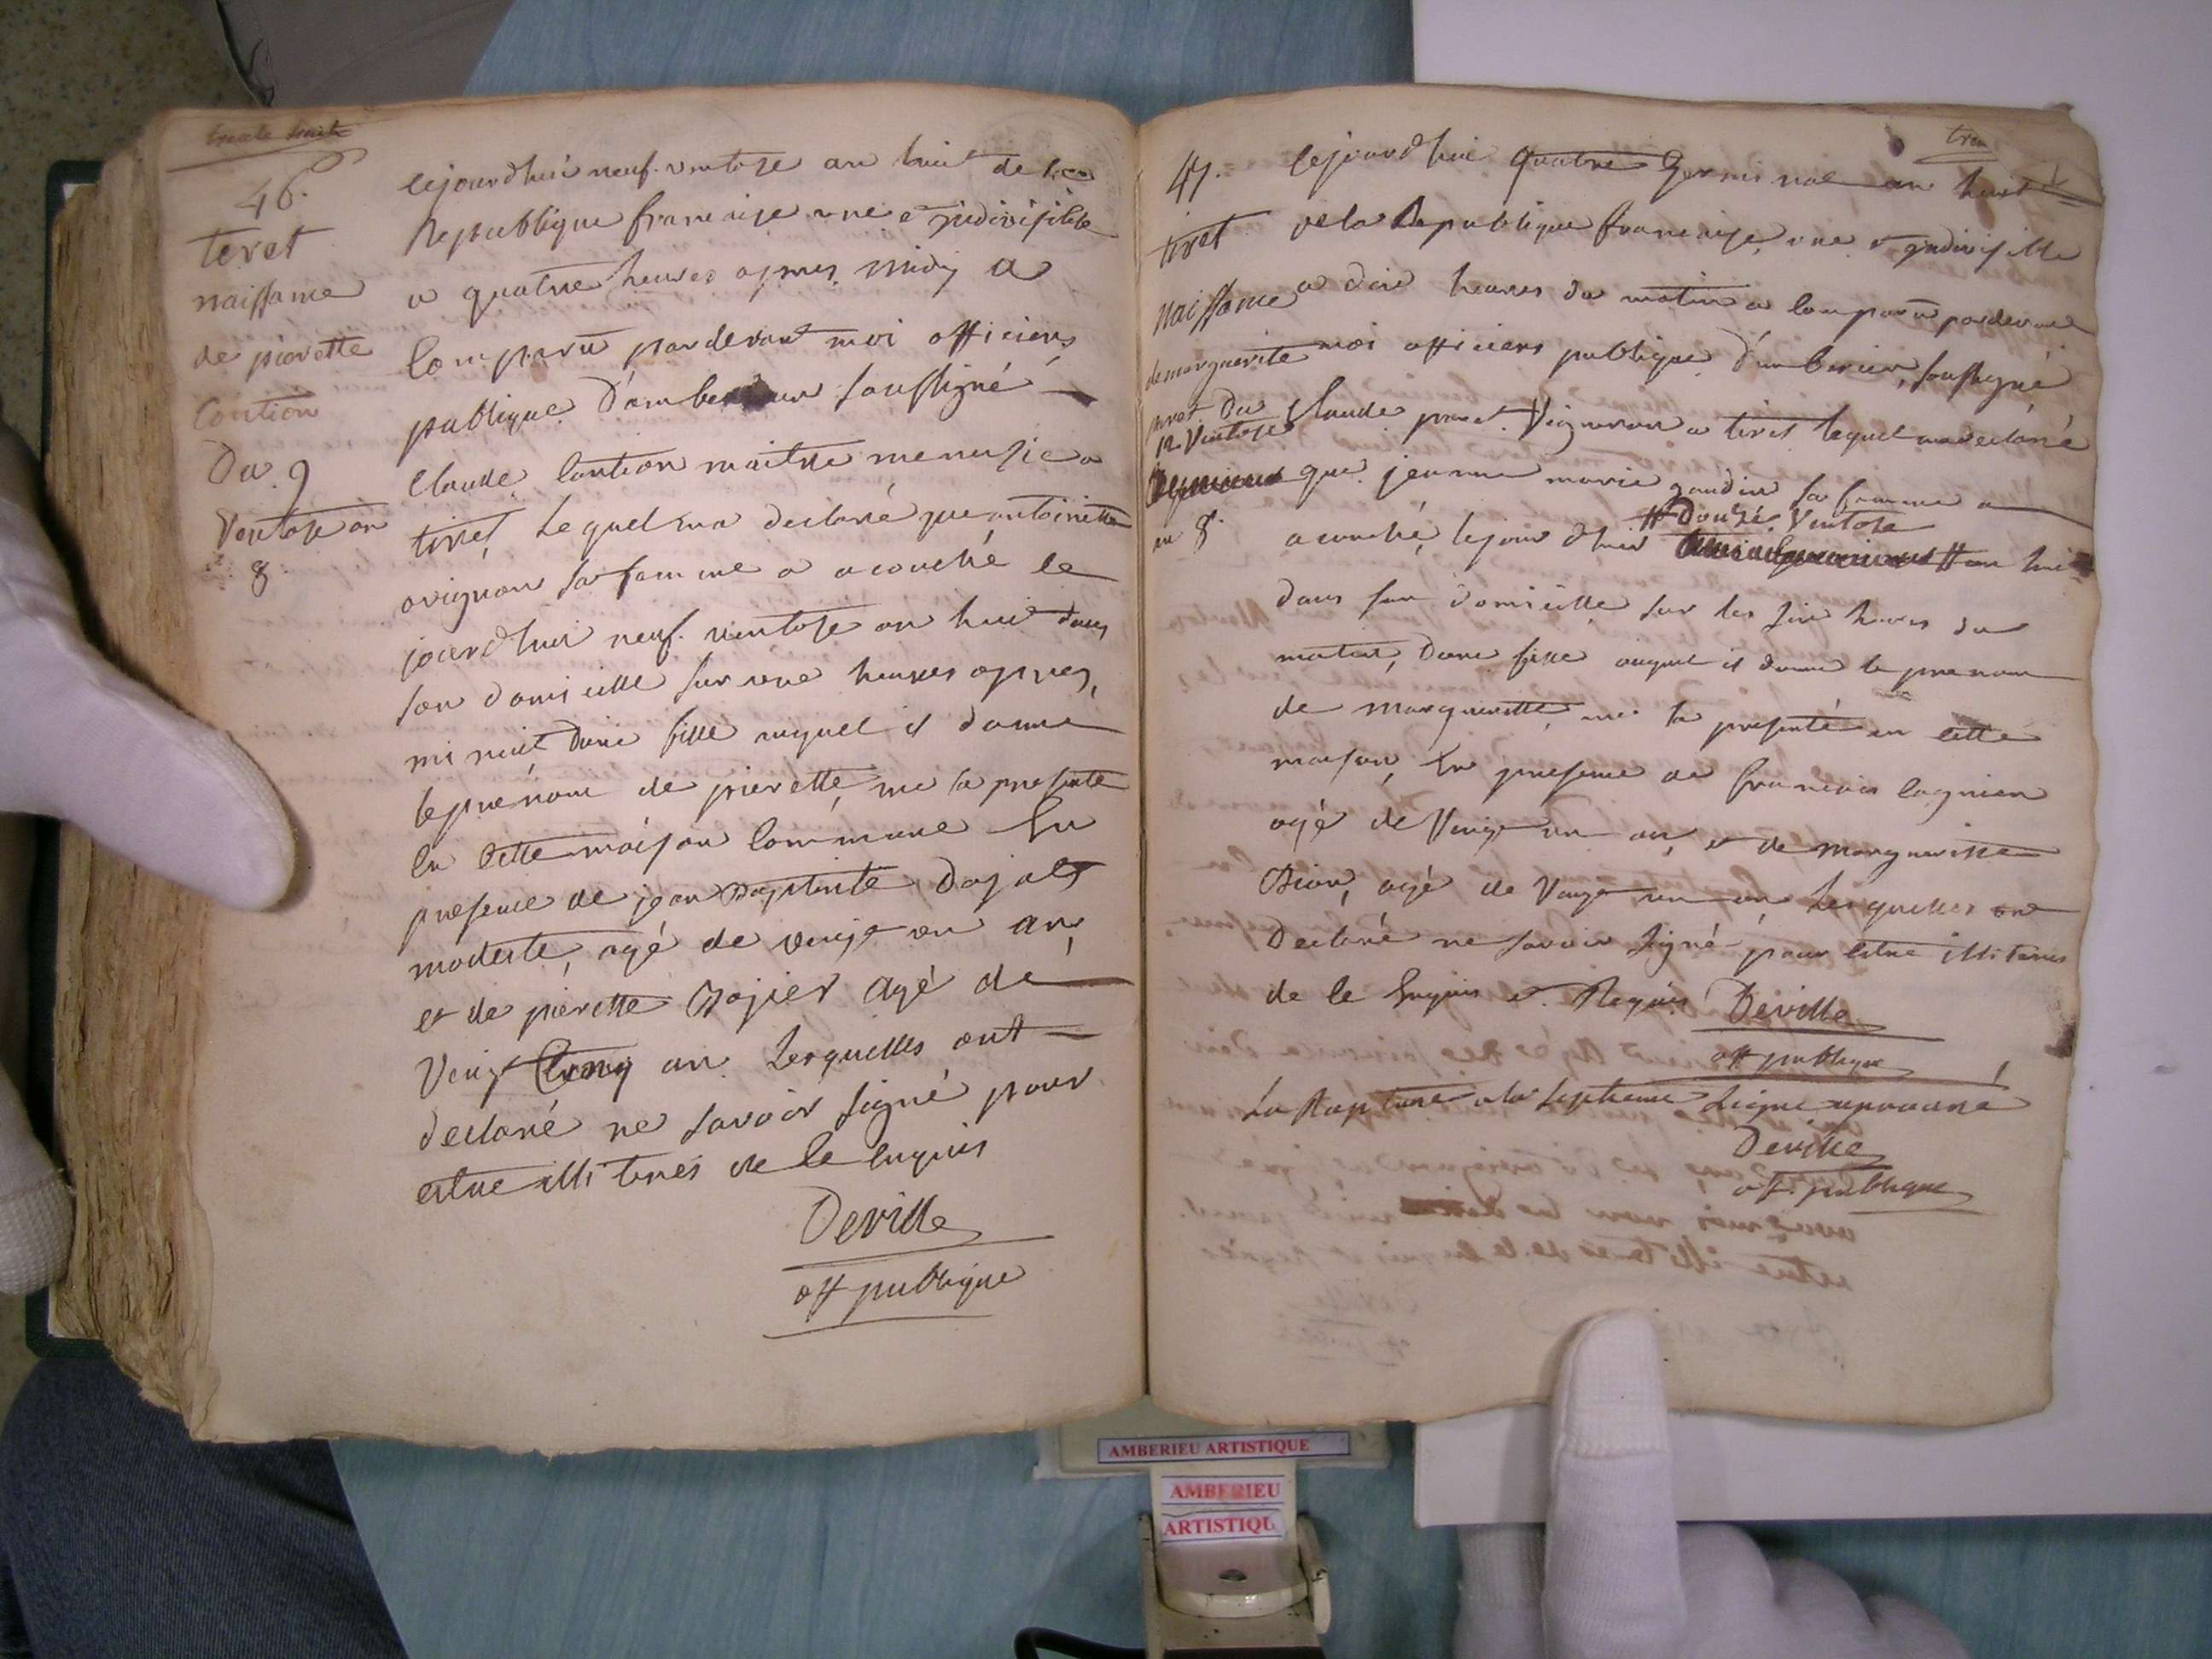 trente huite
46.
teret
naissance
de pierette
Contion
Du 9
Ventose an
8
cejourdhui neuf ventose an huit de la
Republique francaise une et jndivisible
a quatre heures apres midy a
Comparu pardevant moi officiers
publique D'amberieux soussigné
Claude Contion maitre menusie a
tiret, Lequel ma declaré que antoinette
avignon sa famme a acouché le
jourdhui neuf ventose an huit dans
son domicille sur une heures apres
mi nuit, dune fille auquel il donne
le prénom de pierette, me la presente
en Cette maison Commune En
presence de jean Baptiste Dojat
modeste, agé de vingt un ans
et de pierette Bojier agé de
Vingt Cinq an Lesquelles ont
declaré ne savoir signé pour
estre illi terés de le Enquis
Deville
off publique
tren
47.
tiret
Naissance
de marguerite
Du
12 Ventose
an 8.
Cejourdhui quatre Germinal an huit
de la Republique francaise, une et jndivisille
a dix heures du matin a Comparu pardevant
moi officiers publique D'amberieux, soussigné
Claude Vigneron a tiret lequel ma declaré
que jeanne marie gaudin sa famme a
acouché, lejour dhui # an huit
# Douzé Ventose
dans son domicille sur les six heures du
matin, dune fille auquel il donne le prenom
de marguerite, me la presenté en cette
maison, En presence de francois lagnien
agé de Vingt un an, et de marguerite
Dion, agé de Vingt un an, Lesquelles ont
Declaré ne savoir signé pour estre illi terés
de le Enquis et Requis Deville
off publique
La Rapture a la septieme Ligne aprouvé
Deville
off. publique
AMBERIEU ARTISTIQUE
AMBERIEU
ARTISTIQU